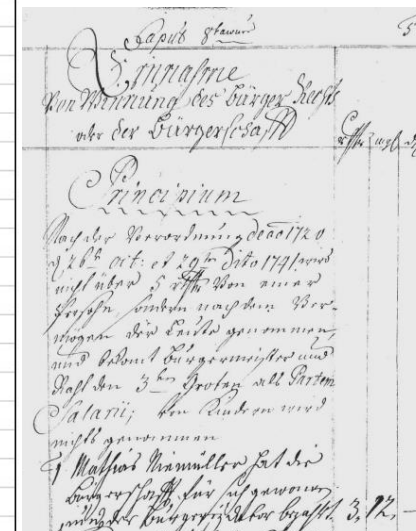 Caput 8tavum 5
Einnahme
Von Winnung des Bürger Rechts
oder der Bürgerschafft
rthr mgl d
Principium
Nach der Verordnung de ao 1720
d 26t oct: et 29ten dito 1741 wird
nicht über 5 rthr Von einer
Persohn, sondern nach dem Ver-
mögen der Leute genommen,
und bekomt Bürgermeister und
Raht den 3ten Groten als Partem
Salarii, von Kindern wird
nichts genommen
1 Mathias Niemüller hat die
Bürgerschafft für sich gewonnen,
und der Bürger dafor bezahlt 3, 12, —